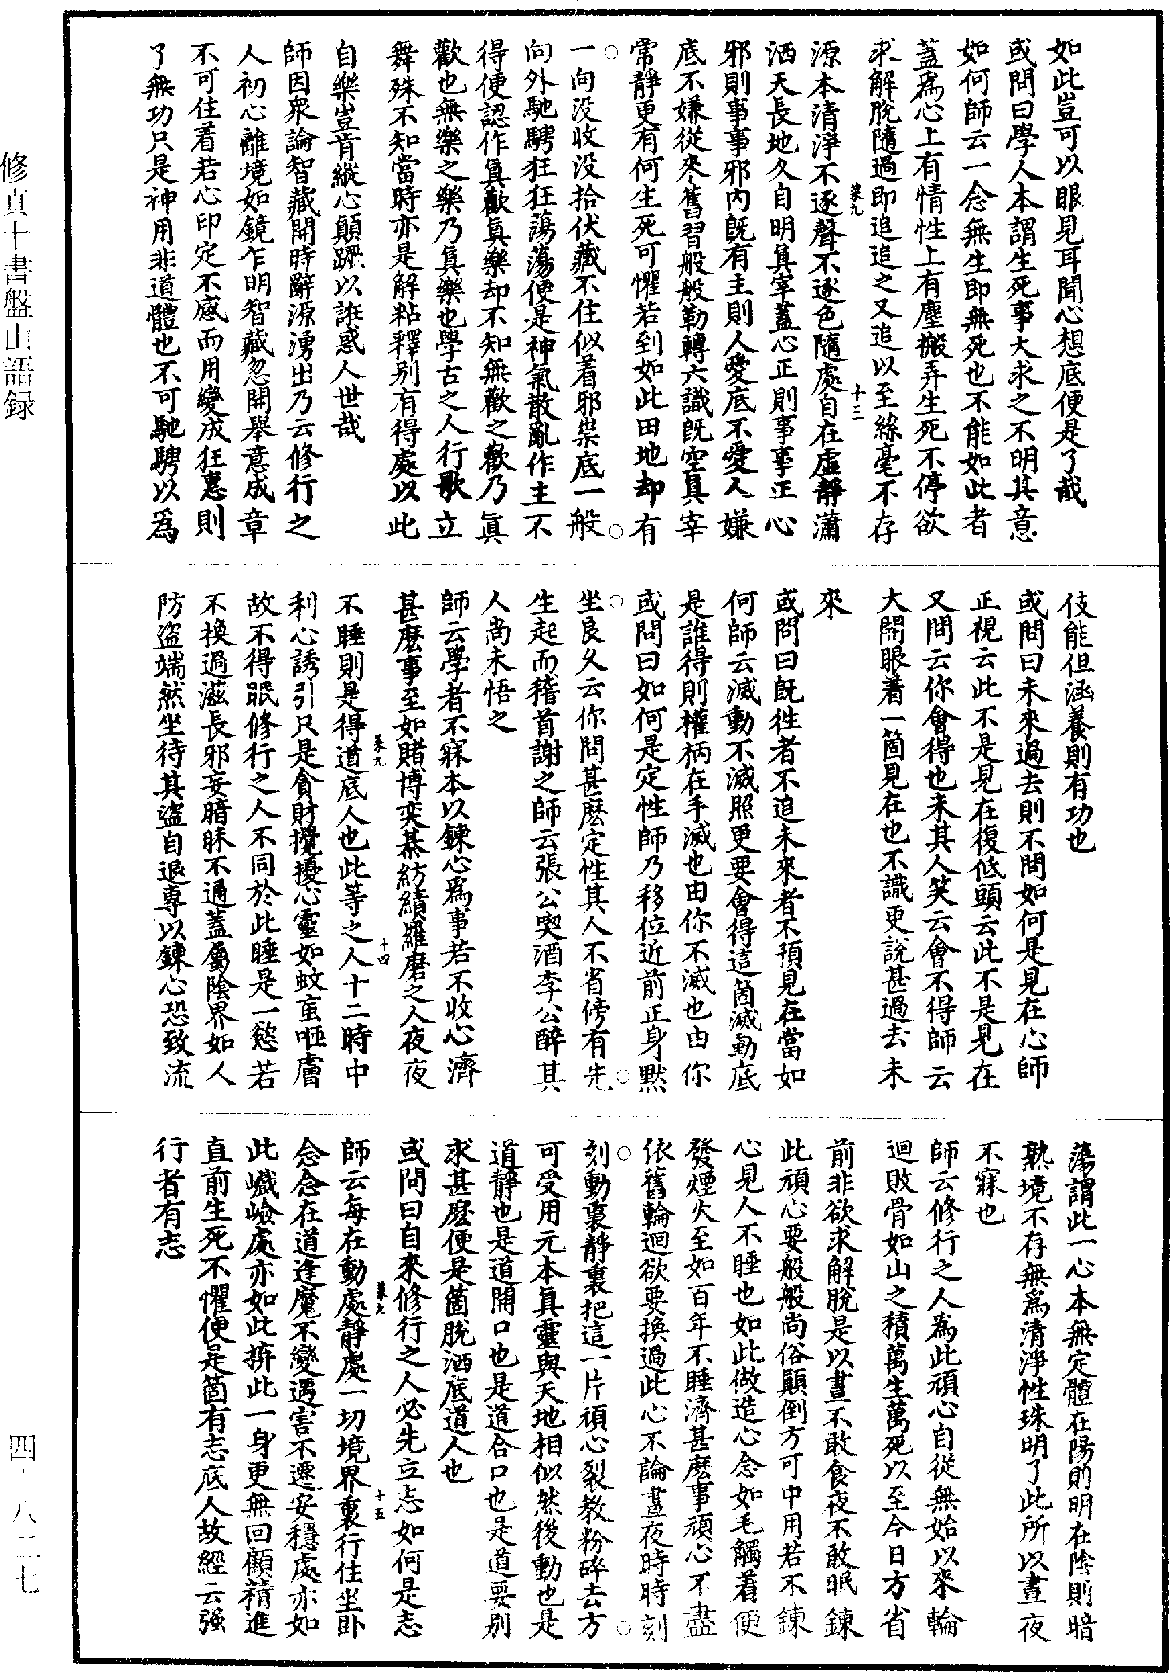 如此豈可以眼見耳聞心想底便是了哉
或問曰學人本謂生死事大求之不明其意
如何師云一念無生即無死也不能如此者
蓋爲心上有情性上有塵搬弄生死不停欲
求解脫隨過即追追之又追以至絲毫不存
源本清淨不逐聲不逐色隨處自在虛靜瀟
洒天長地久自明真宰蓋心正則事事正心
邪則事事邪內既有主則人愛底不愛人嫌
底不嫌從來舊習般般勒轉六識既空真宰
常靜更有何生死可懼若到如此田地却有
一向没收没拾伏藏不住似着邪祟底一般
向外馳騁狂狂蕩蕩便是神氣散亂作主不
得便認作真歡真樂却不知無歡之歡乃真
歡也無樂之樂乃真樂也學古之人行歌立
舞殊不知當時亦是解粘釋别有得處以此
自樂豈肯縱心顛蹶以誑惑人世哉
師因衆論智藏開時辭源湧出乃云修行之
人初心離境如鏡乍明智藏忽開舉意成章
不可住着若心印定不感而用變成狂惠則
了無功只是神用非道體也不可馳騁以爲
伎能但涵養則有功也
或問曰未來過去則不問如何是見在心師
正視云此不是見在復低頭云此不是見在
又問云你會得也未其人笑云會不得師云
大開眼着一箇見在也不識更說甚過去未
來
或問曰既徃者不追未來者不預見在當如
何師云滅動不滅照更要會得這箇滅動底
是誰得則權柄在手滅也由你不滅也由你
或問曰如何是定性師乃移位近前正身默
坐良久云你問甚麽定性其人不省傍有先
生起而稽首謝之師云張公喫酒李公醉其
人尚未悟之
師云學者不寐本以鍊心爲事若不收心濟
甚麽事至如賭博奕棊紡績羅磨之人夜夜
不睡則是得道底人也此等之人十二時中
利心誘引只是貪財攪擾心靈如蚊䖟咂膚
故不得眠修行之人不同於此睡是一慾若
不換過滋長邪妄暗昧不通蓋屬陰界如人
防盜端然坐待其盜自退專以鍊心恐致流
蕩謂此一心本無定體在陽則明在陰則暗
熟境不存無爲清淨性珠明了此所以晝夜
不寐也
師云修行之人為此頑心自從無始以來輪
迴敗骨如山之積萬生萬死以至今日方省
前非欲求解脫是以晝不敢食夜不敢眠鍊
此頑心要般般尚俗顛倒方可中用若不鍊
心見人不睡也如此做造心念如毛觸着便
發煙火至如百年不睡濟甚麽事頑心不盡
依舊輪迴欲要換過此心不論晝夜時時刻
刻動裏靜裏把這一片頑心裂教粉碎去方
可受用元本真靈與天地相似然後動也是
道靜也是道開口也是道合口也是道要别
求甚麽便是箇脫洒底道人也
或問曰自來修行之人必先立志如何是志
師云每在動處靜處一切境界裏行住坐卧
念念在道逢魔不變遇害不遷安穩處亦如
此巇嶮處亦如此拚此一身更無回顧精進
直前生死不懼便是箇有志底人故經云强
行者有志
菜九
十三
菜九
十四
菜九
十五
修真十書盤山語録
四·八二七